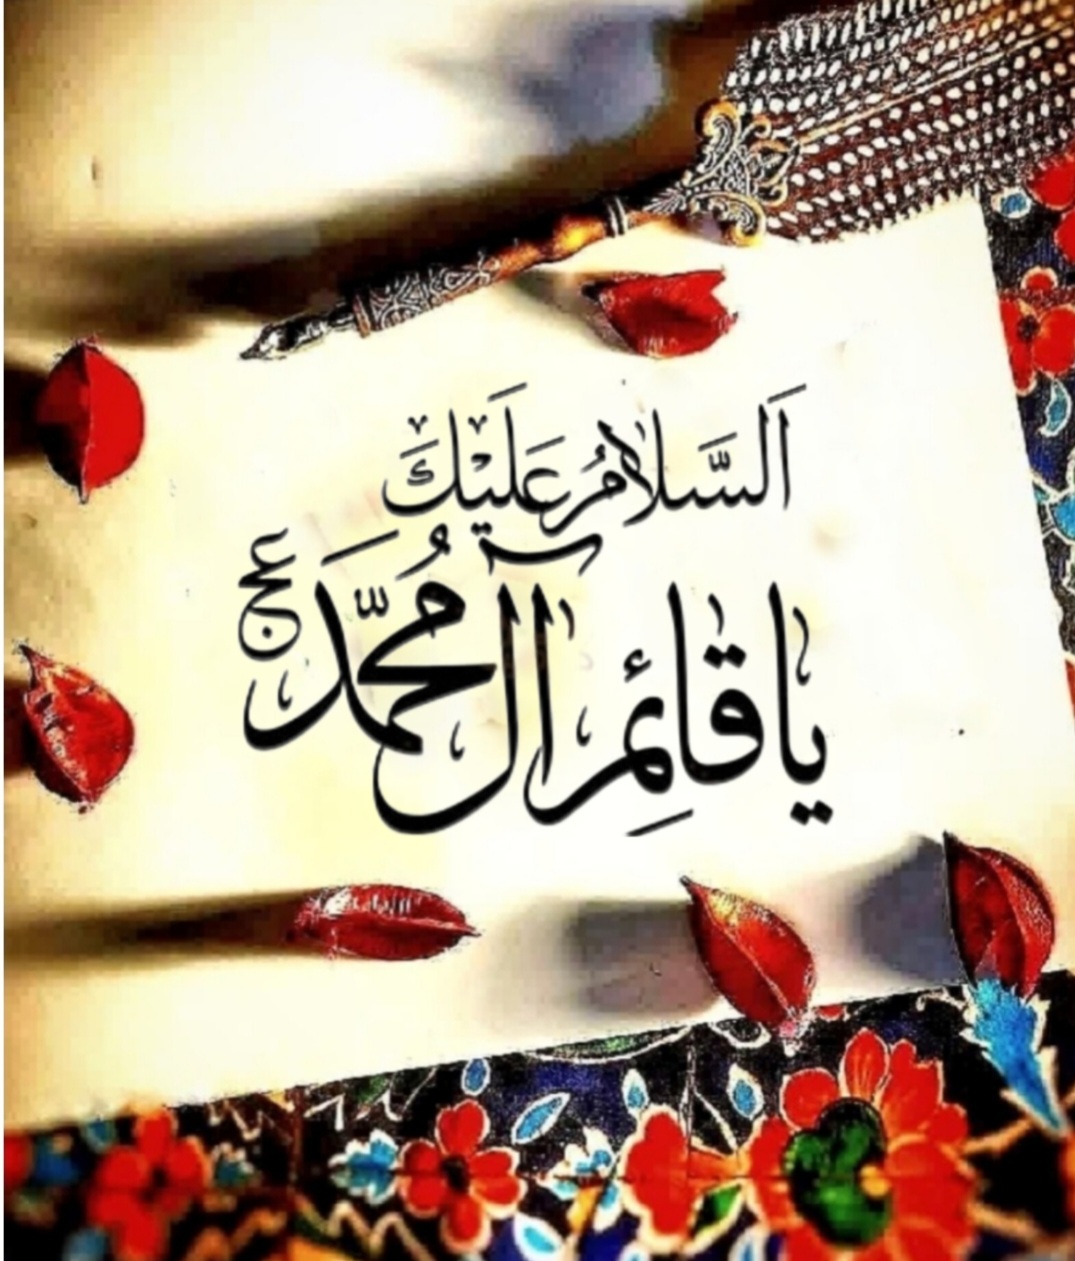 اَلسَّلامُ عَلَيْكَ
يا قائِم آل مُحَمَّدَ عج